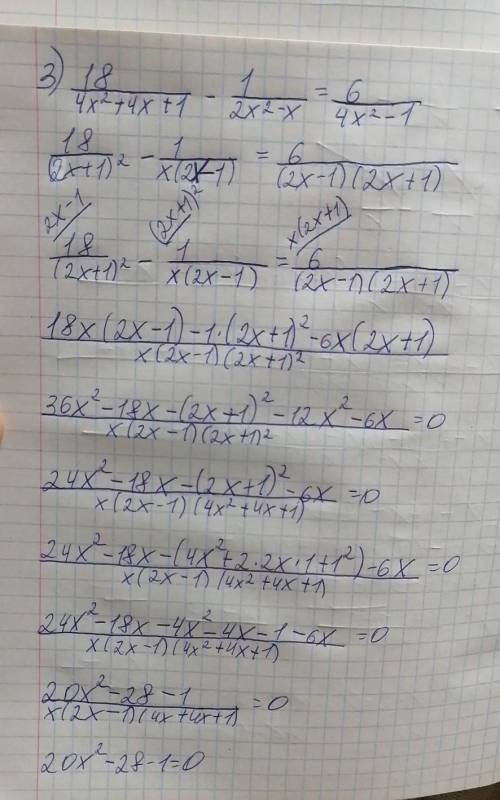 3) 18/(4x²+4x+1) - 1/(2x²-x) = 6/(4x²-1)
18/(2x+1)² - 1/(x(2x-1)) = 6/((2x-1)(2x+1))
2x-1 (2x+1)² x(2x+1)
18/(2x+1)² - 1/(x(2x-1)) = 6/((2x-1)(2x+1))
(18x(2x-1)-1·(2x+1)²-6x(2x+1))/(x(2x-1)(2x+1)²)
(36x²-18x-(2x+1)²-12x²-6x)/(x(2x-1)(2x+1)²) = 0
(24x²-18x-(2x+1)²-6x)/(x(2x-1)(4x²+4x+1)) = 0
(24x²-18x-(4x²+2·2x·1+1²)-6x)/(x(2x-1)(4x²+4x+1)) = 0
(24x²-18x-4x²-4x-1-6x)/(x(2x-1)(4x²+4x+1)) = 0
(20x²-28-1)/(x(2x-1)(4x+4x+1)) = 0
20x²-28-1=0